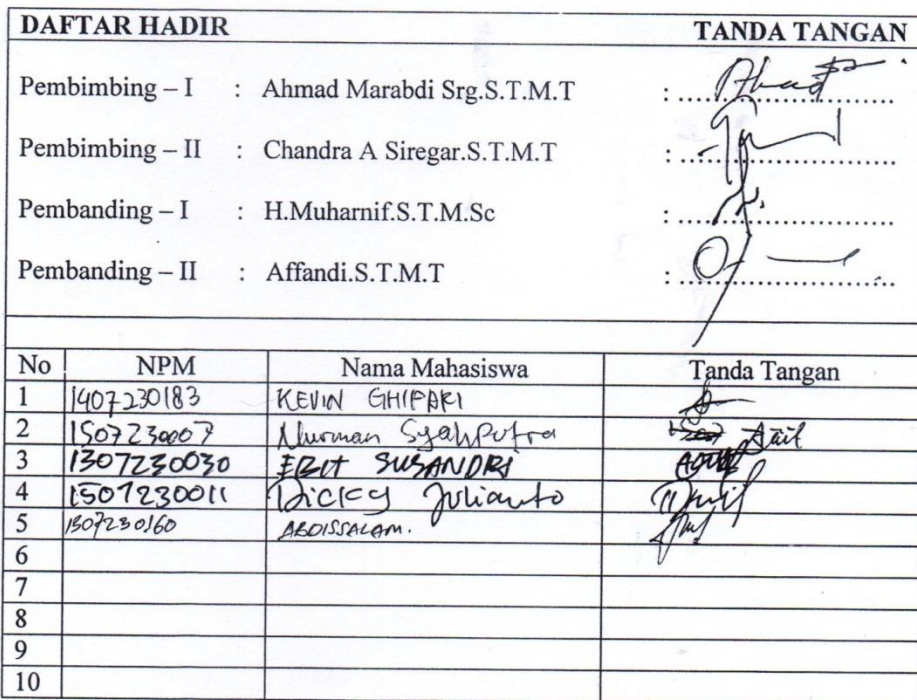 DAFTAR HADIR TANDA TANGAN
Pembimbing – I : Ahmad Marabdi Srg.S.T.M.T : ....................
Pembimbing – II : Chandra A Siregar.S.T.M.T : ....................
Pembanding – I : H.Muharnif.S.T.M.Sc : ....................
Pembanding – II : Affandi.S.T.M.T : ....................
No NPM Nama Mahasiswa Tanda Tangan
1 1407230183 KEVIN GHIPARI
2 1507230007 Nurman Syahputra
3 1307230030 EBIT SUSANDRI
4 1507230011 Dicky Julianto
5 1507230160 ABDISSALAM.
6
7
8
9
10